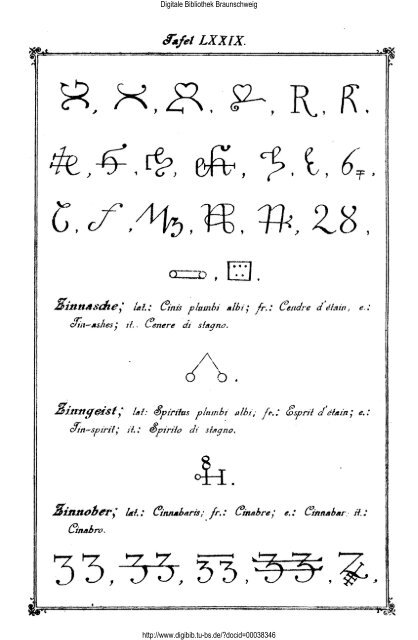 Digitale Bibliothek Braunschweig
Tafel LXXIX.
R, R.
6
28,
Zinnasche; lat.: Cinis plumbi albi; fr.: Cendre d'étain, e.:
Tin-ashes; it.. Cenere di stagno.
Zinngeist; lat: Spiritus plumbi albi; fr.: Esprit d'étain; e.:
Tin-spirit; it.: Spirito di stagno.
Zinnober; lat.: Cinnabaris; fr.: Cinabre; e.: Cinnabar it.:
Cinabro.
33, 33, 33, 33,
http://www.digibib.tu-bs.de/?docid=00038346